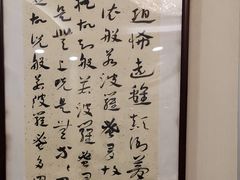 恐怖遠離顛倒夢
依般若波羅蜜多故
故知般若波羅蜜多
是無上咒是無等等
故說般若波羅蜜多